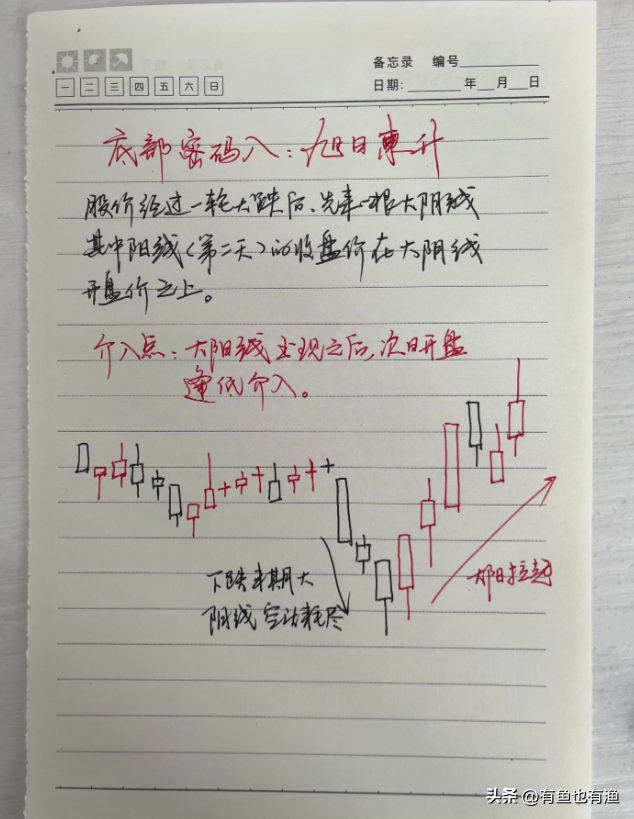 备忘录 编号
一 二 三 四 五 六 日
日期: 年 月 日
底部密码八:旭日東升
股价经过一轮大跌后、先来一根大阴线
其中阳线(第二天)的收盘价在大阴线
开盘价之上。
介入点:大阳线出现之后,次日开盘
逢低介入。
下跌末期大
阴线 空头耗尽
大阳拉起
头条 @有鱼也有渔